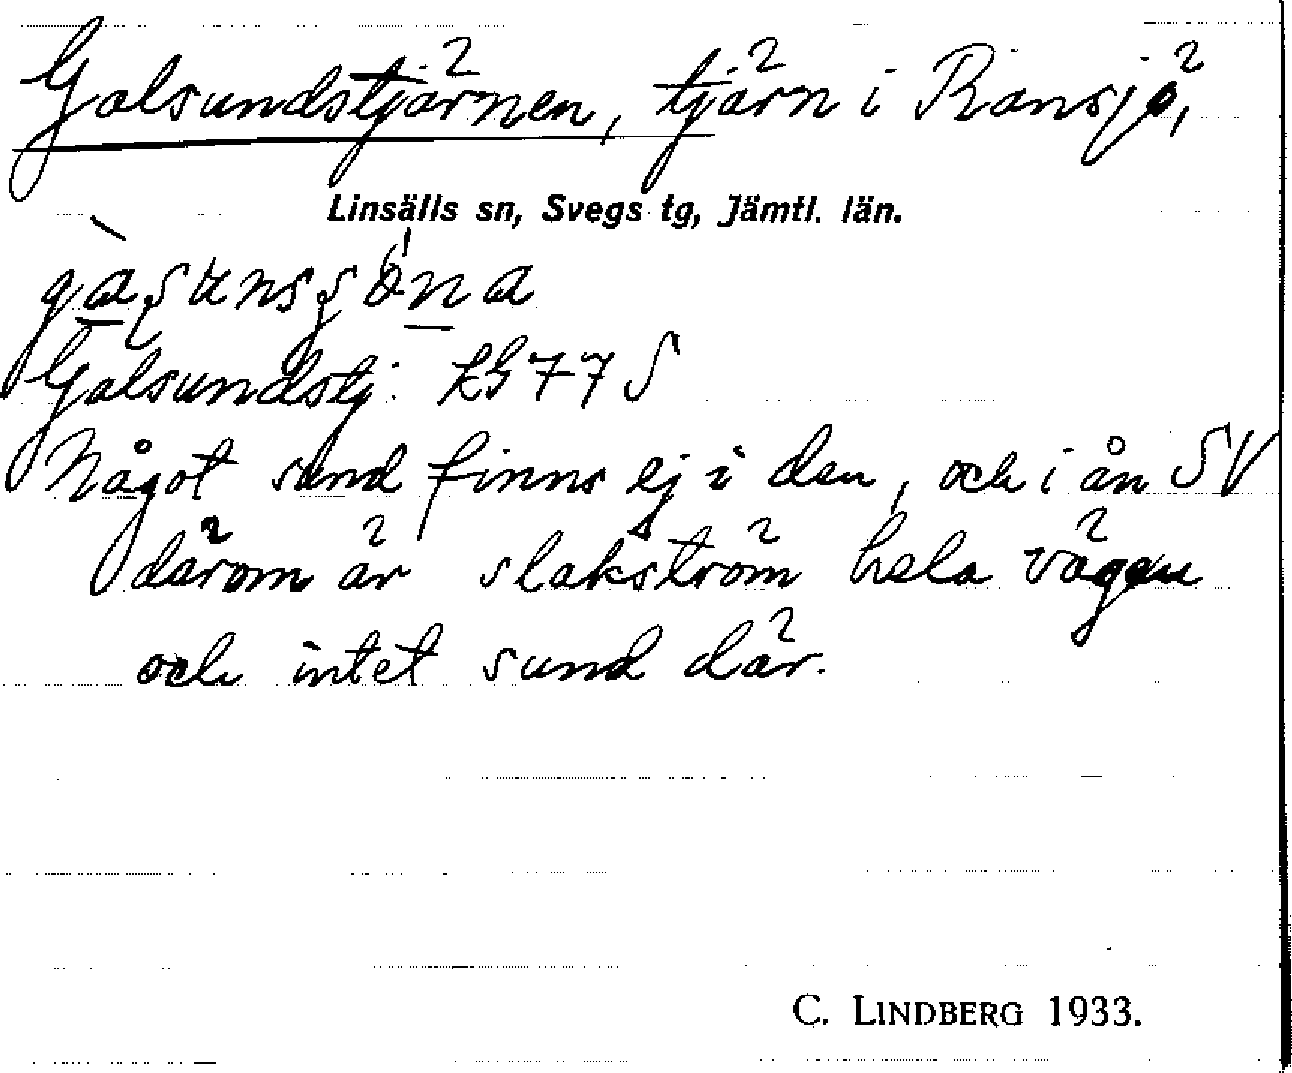 Galsundstjärnen, tjärn i Ransjö,
Linsälls sn, Svegs tg, Jämtl. län.
Galsundstj. kG77S
Något sund finns ej i den, och i ån SV
därom är slakström hela vägen
och intet sund där.
C. LINDBERG 1933.